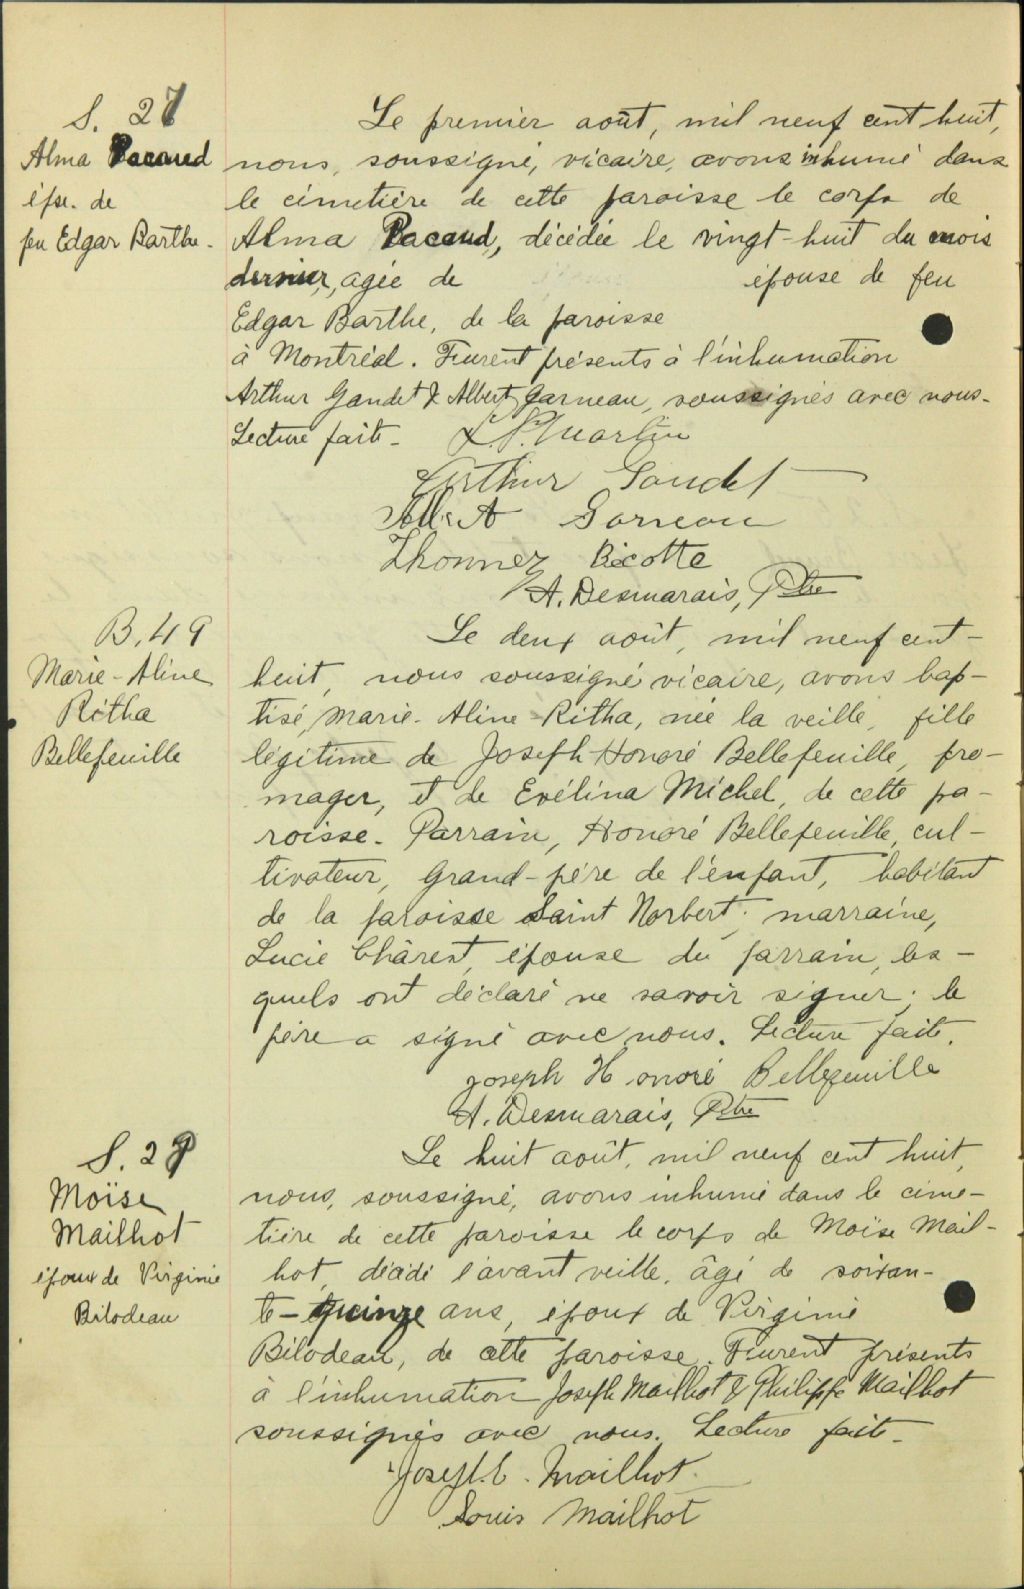 S. 27
Alma Pacaud
épse. de
feu Edgar Barthe.
Le premier août, mil neuf cent huit,
nous, soussigné, vicaire, avons inhumé dans
le cimetière de cette paroisse le corps de
Alma Pacaud, décédée le vingt-huit du mois
dernier, agée de épouse de feu
Edgar Barthe, de la paroisse
à Montréal. Furent présents à l'inhumation
Arthur Gaudet & Albert Garneau, soussignés avec nous.
Lecture faite. Martin
Arthur Gaudet
Albert Garneau
Bécotte
A. Desmarais, Ptre
B. 49
Marie-Aline
Ritha
Bellefeuille
Le deux août, mil neuf cent-
huit, nous soussigné vicaire, avons bap-
tisé, Marie-Aline-Ritha, née la veille, fille
légitime de Joseph Honoré Bellefeuille, fro-
mager, et de Evélina Michel, de cette pa-
roisse. Parrain, Honoré Bellefeuille, cul-
tivateur, grand-père de l'enfant, habitant
de la paroisse Saint Norbert; marraine,
Lucie Chârest, épouse du parrain, les-
quels ont déclaré ne savoir signer; le
père a signé avec nous. Lecture faite.
Joseph Honoré Bellefeuille
A. Desmarais, Ptre
S. 29
Moïse
Mailhot
époux de Virginie
Bilodeau
Le huit août, mil neuf cent huit,
nous, soussigné, avons inhumé dans le cime-
tière de cette paroisse le corps de Moïse Mail-
hot, décédé l'avant veille, âgé de soixan-
te-quinze ans, époux de Virginie
Bilodeau, de cette paroisse. Furent présents
à l'inhumation Joseph Mailhot & Philippe Mailhot
soussignés avec nous. Lecture faite.
Mailhot
Louis Mailhot